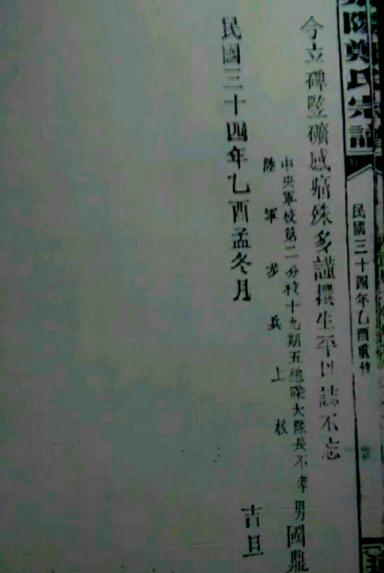 陽鄭氏宗譜
民國三十四年乙酉重修
今立碑墜礦感痛殊多謹撰生平以誌不忘
中央軍校第二分校十九期五總隊大隊長不孝男國鼎
陸軍步兵上校
民國三十四年乙酉孟冬月
吉旦